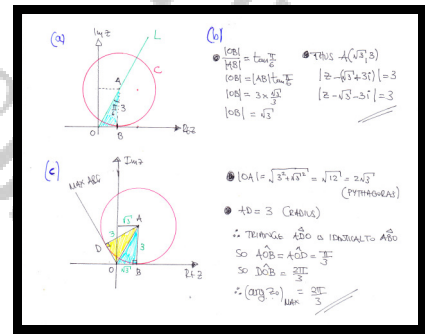 (a)
Imz
L
C
A
3
π/6
O
B
Rez
(b)
|OB|/|AB| = tan π/6
|OB| = |AB| tan π/6
|OB| = 3 × √3/3
|OB| = √3
THUS A(√3, 3)
|z - (√3 + 3i)| = 3
|z - √3 - 3i| = 3
(c)
Imz
MAX ARG
√3
A
D
3
3
O
√3
B
Rez
|OA| = √(3² + √3²) = √12 = 2√3
(PYTHAGORAS)
AD = 3 (RADIUS)
∴ TRIANGLE ADO IS IDENTICAL TO ABO
SO AÔB = AÔD = π/3
SO DÔB = 2π/3
∴ (arg z₀)MAX = 2π/3